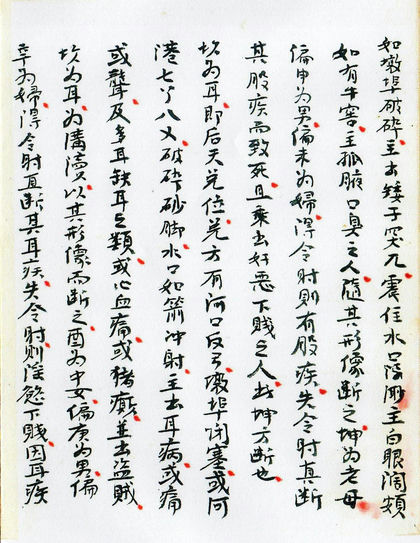 如墩埠破碎主出矮子突兀震住水口陰主白眼濶頦
如有牛窖主孤腋口臭之人隨其形像斷之坤為老母
偏申為男偏未為婦得令时則有股疾失令时真断
其股疾而致死且乘出奸惡下賤之人此坤方断也
坎為耳即后天兑位兑方有河口反弓墩埠闭塞或河
港七丫八乂破碎砂脚水口如箭冲射主出耳病或痛
或聾及多耳缺耳之類或心血痛或猪癫並出盗賊
坎為耳為溝瀆以其形像而断之酉為中女偏庚為男偏
辛為婦得令时直断其耳疾失令时則淫慾下賤因耳疾